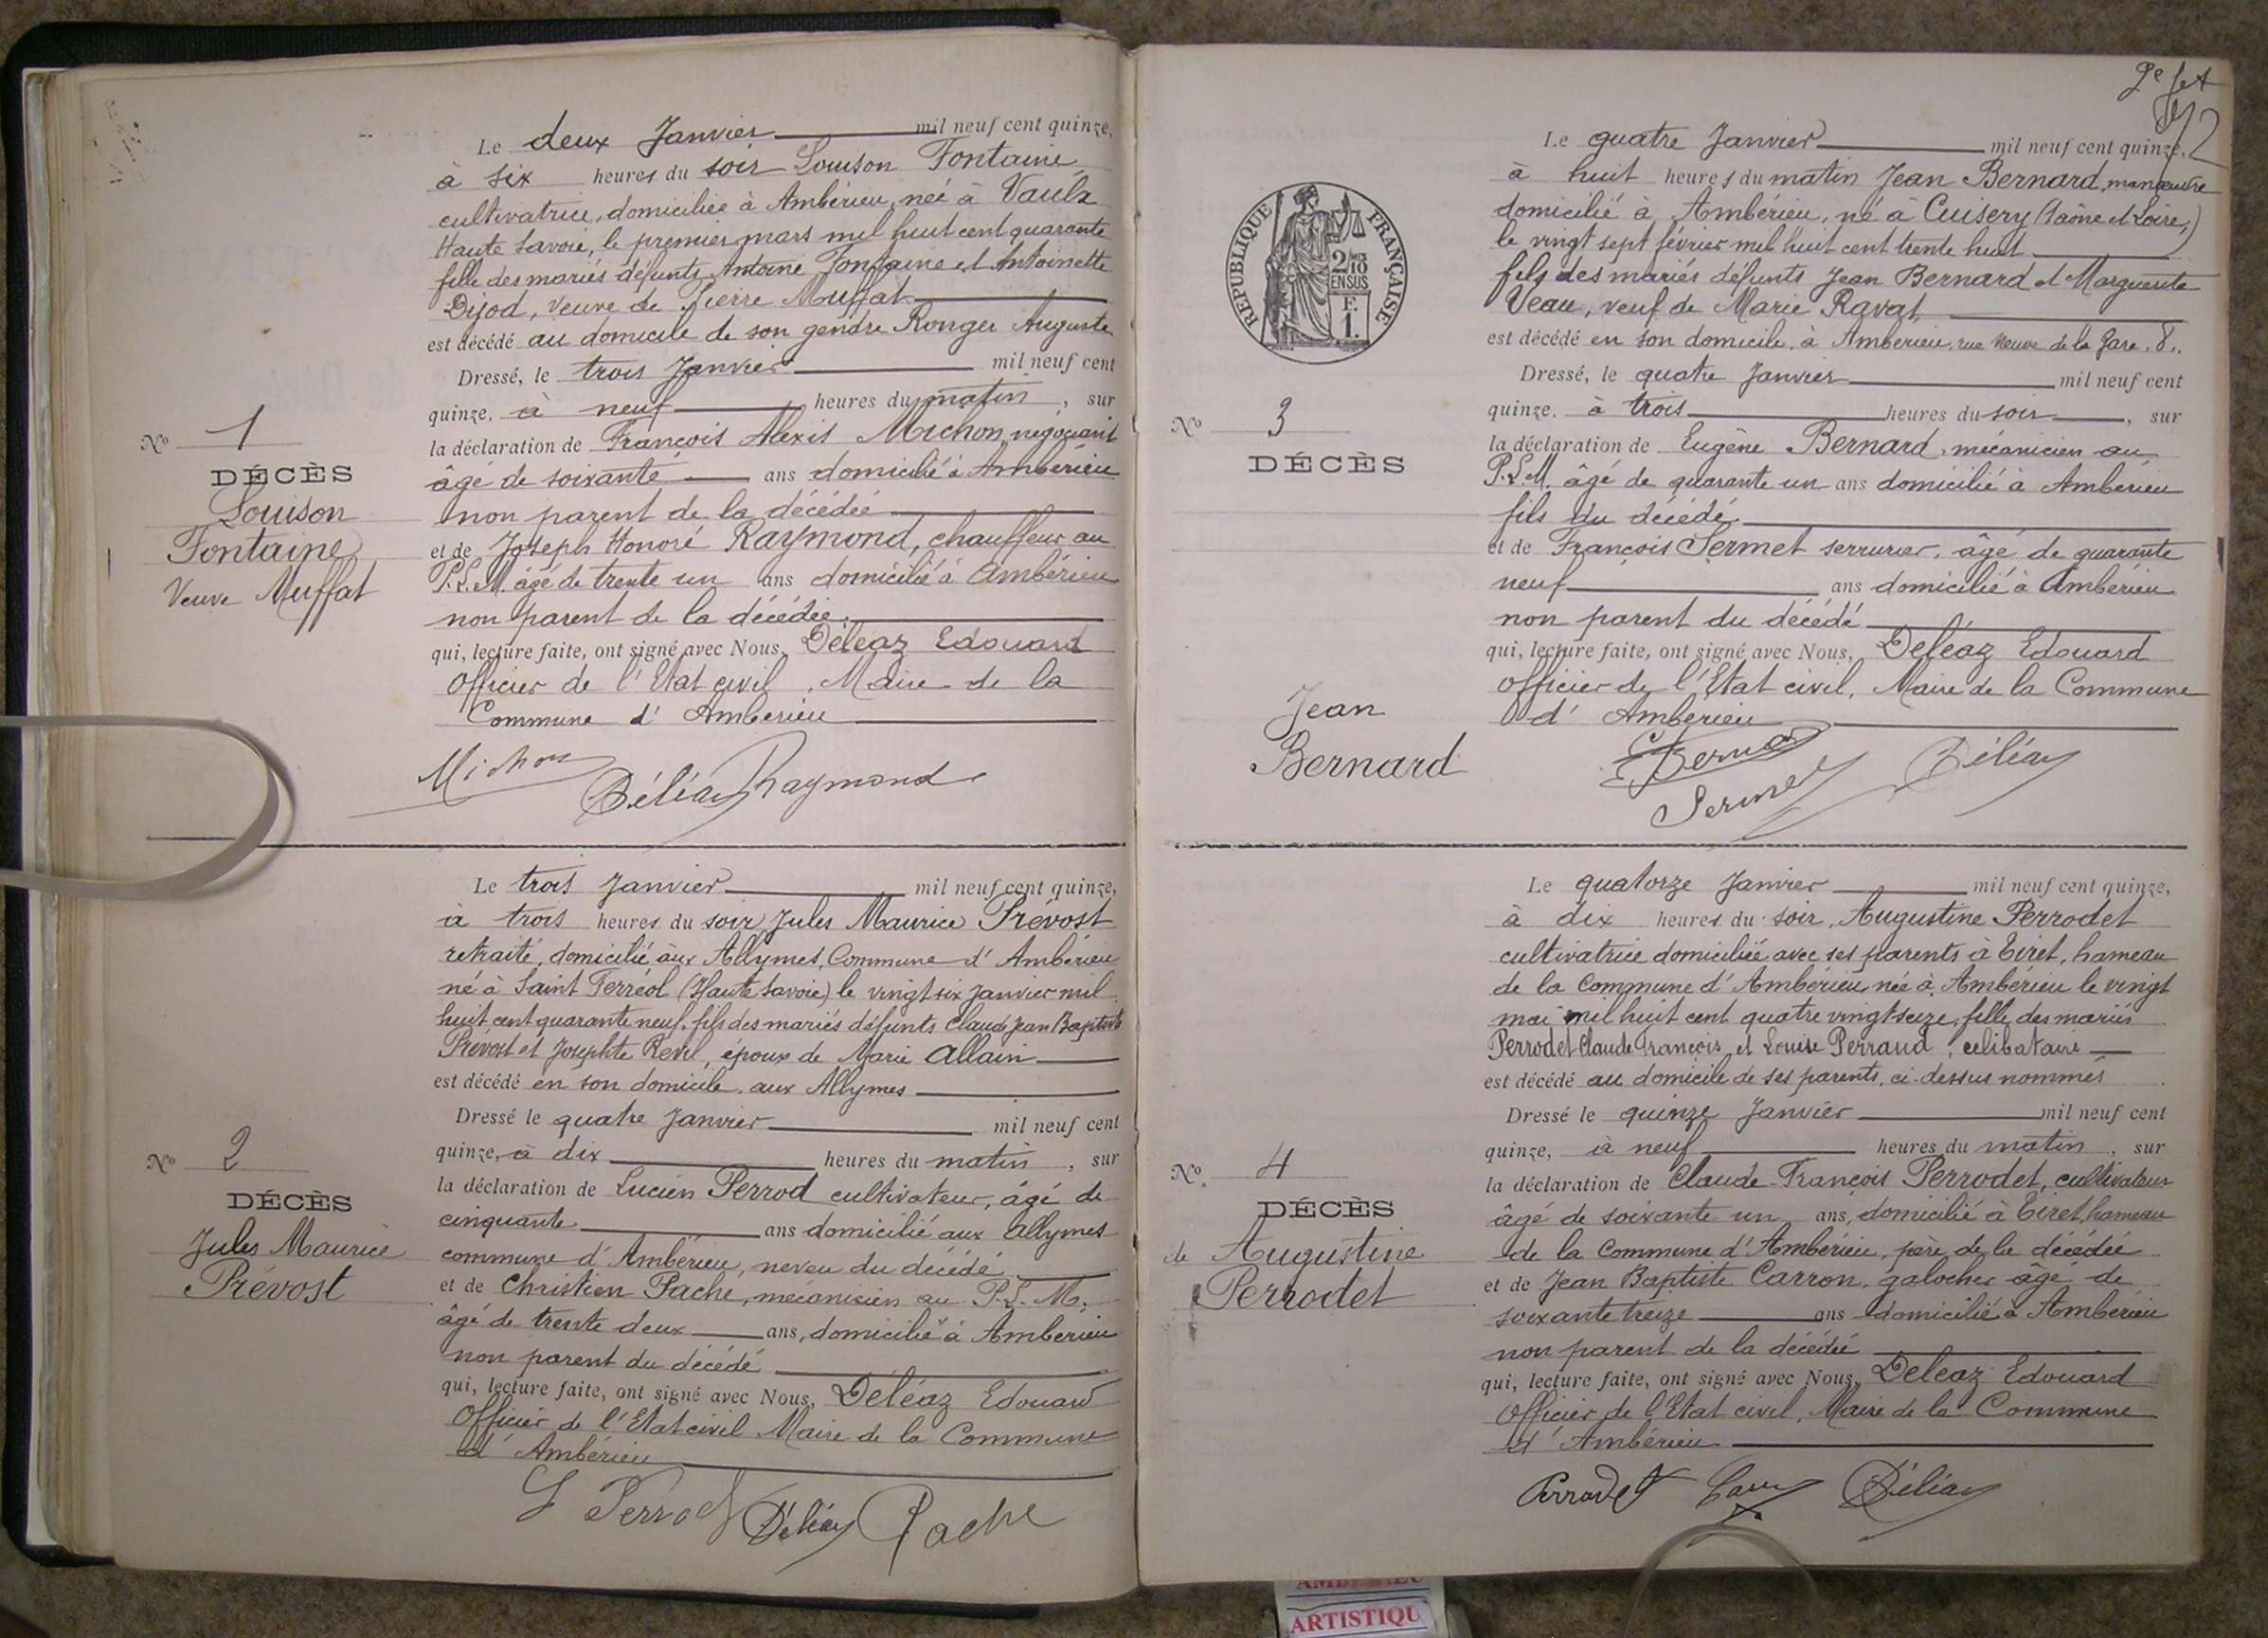 Le deux Janvier mil neuf cent quinze,
à six heures du soir Louison Fontaine
cultivatrice, domiciliée à Ambérieu, née à Vaulx
Haute Savoie, le premier mars mil huit cent quarante
fille des mariés défunts Antoine Fontaine et Antoinette
Dijod, veuve de Pierre Muffat
est décédé au domicile de son gendre Ronger Auguste
Dressé, le trois Janvier mil neuf cent
quinze, à neuf heures du matin, sur
la déclaration de François Alexis Michon, négociant
âgé de soixante ans domicilié à Ambérieu
non parent de la décédée
et de Joseph Honoré Raymond, chauffeur au
P.L.M. âgé de trente un ans domicilié à Ambérieu
non parent de la décédée
qui, lecture faite, ont signé avec Nous, Déléaz Edouard
Officier de l'Etat civil, Maire de la
Commune d'Ambérieu
No 1
DÉCÈS
Louison
Fontaine
Veuve Muffat
Michon Déléaz Raymond
Le trois Janvier mil neuf cent quinze,
à trois heures du soir Jules Maurice Prévost
retraité, domicilié aux Allymes, Commune d'Ambérieu
né à Saint Ferréol (Haute Savoie) le vingt six Janvier mil
huit cent quarante neuf, fils des mariés défunts Claude Jean Baptiste
Prévost et Josephte Revil, époux de Marie Allain
est décédé en son domicile, aux Allymes
Dressé le quatre Janvier mil neuf cent
quinze, à dix heures du matin, sur
la déclaration de Lucien Perrod cultivateur, âgé de
cinquante ans domicilié aux Allymes
commune d'Ambérieu, neveu du décédé
et de Christien Pache, mécanicien au P.L.M.
âgé de trente deux ans, domicilié à Ambérieu
non parent du décédé
qui, lecture faite, ont signé avec Nous, Déléaz Edouard
Officier de l'Etat civil Maire de la Commune
d'Ambérieu
No 2
DÉCÈS
Jules Maurice
Prévost
L Perrod Déléaz Pache
2e fet
2
RÉPUBLIQUE FRANÇAISE
2/10
EN SUS
F.
1.
Le quatre Janvier mil neuf cent quinze,
à huit heures du matin Jean Bernard, manœuvre
domicilié à Ambérieu, né à Cuisery (Saône et Loire)
le vingt sept février mil huit cent trente huit
fils des mariés défunts Jean Bernard et Marguerite
Veau, veuf de Marie Ravat
est décédé en son domicile, à Ambérieu, rue Neuve de la Gare, 8.
Dressé, le quatre Janvier mil neuf cent
quinze, à trois heures du soir, sur
la déclaration de Eugène Bernard, mécanicien au
P.L.M. âgé de quarante un ans domicilié à Ambérieu
fils du décédé
et de François Sermet serrurier, âgé de quarante
neuf ans domicilié à Ambérieu
non parent du décédé
qui, lecture faite, ont signé avec Nous, Déléaz Edouard
Officier de l'Etat civil, Maire de la Commune
d'Ambérieu
No 3
DÉCÈS
Jean
Bernard
E Bernard Déléaz
Sermet
Le quatorze Janvier mil neuf cent quinze,
à dix heures du soir, Augustine Perrodet
cultivatrice domiciliée avec ses parents à Tiret, hameau
de la Commune d'Ambérieu, née à Ambérieu le vingt
mai mil huit cent quatre vingt seize, fille des mariés
Perrodet Claude François et Louise Perraud, célibataire
est décédé au domicile de ses parents, ci-dessus nommés
Dressé le quinze Janvier mil neuf cent
quinze, à neuf heures du matin, sur
la déclaration de Claude François Perrodet, cultivateur
âgé de soixante un ans, domicilié à Tiret, hameau
de la Commune d'Ambérieu, père de la décédée
et de Jean Baptiste Carron, galocher âgé de
soixante treize ans domicilié à Ambérieu
non parent de la décédée
qui, lecture faite, ont signé avec Nous, Déléaz Edouard
Officier de l'Etat civil, Maire de la Commune
d'Ambérieu
No 4
DÉCÈS
de Augustine
Perrodet
Perrodet Déléaz
AMBÉRIEU
ARTISTIQU